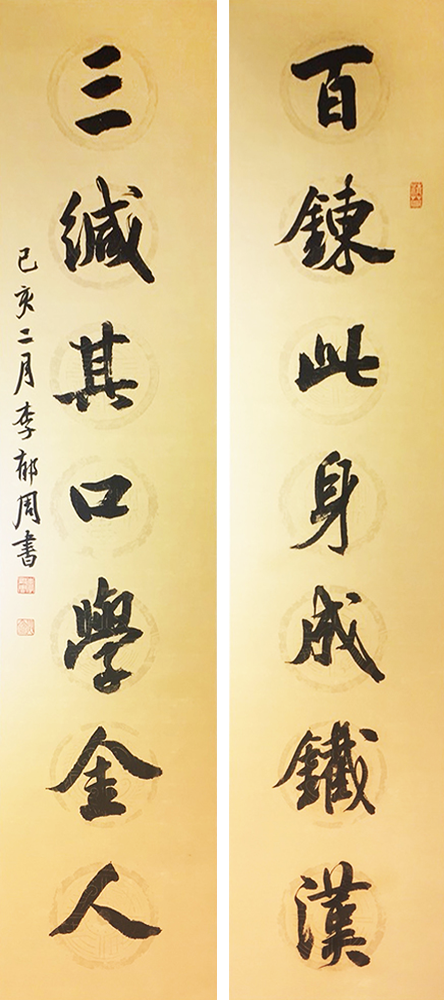 百鍊此身成鐵漢
三緘其口學金人
己亥二月李郁周書